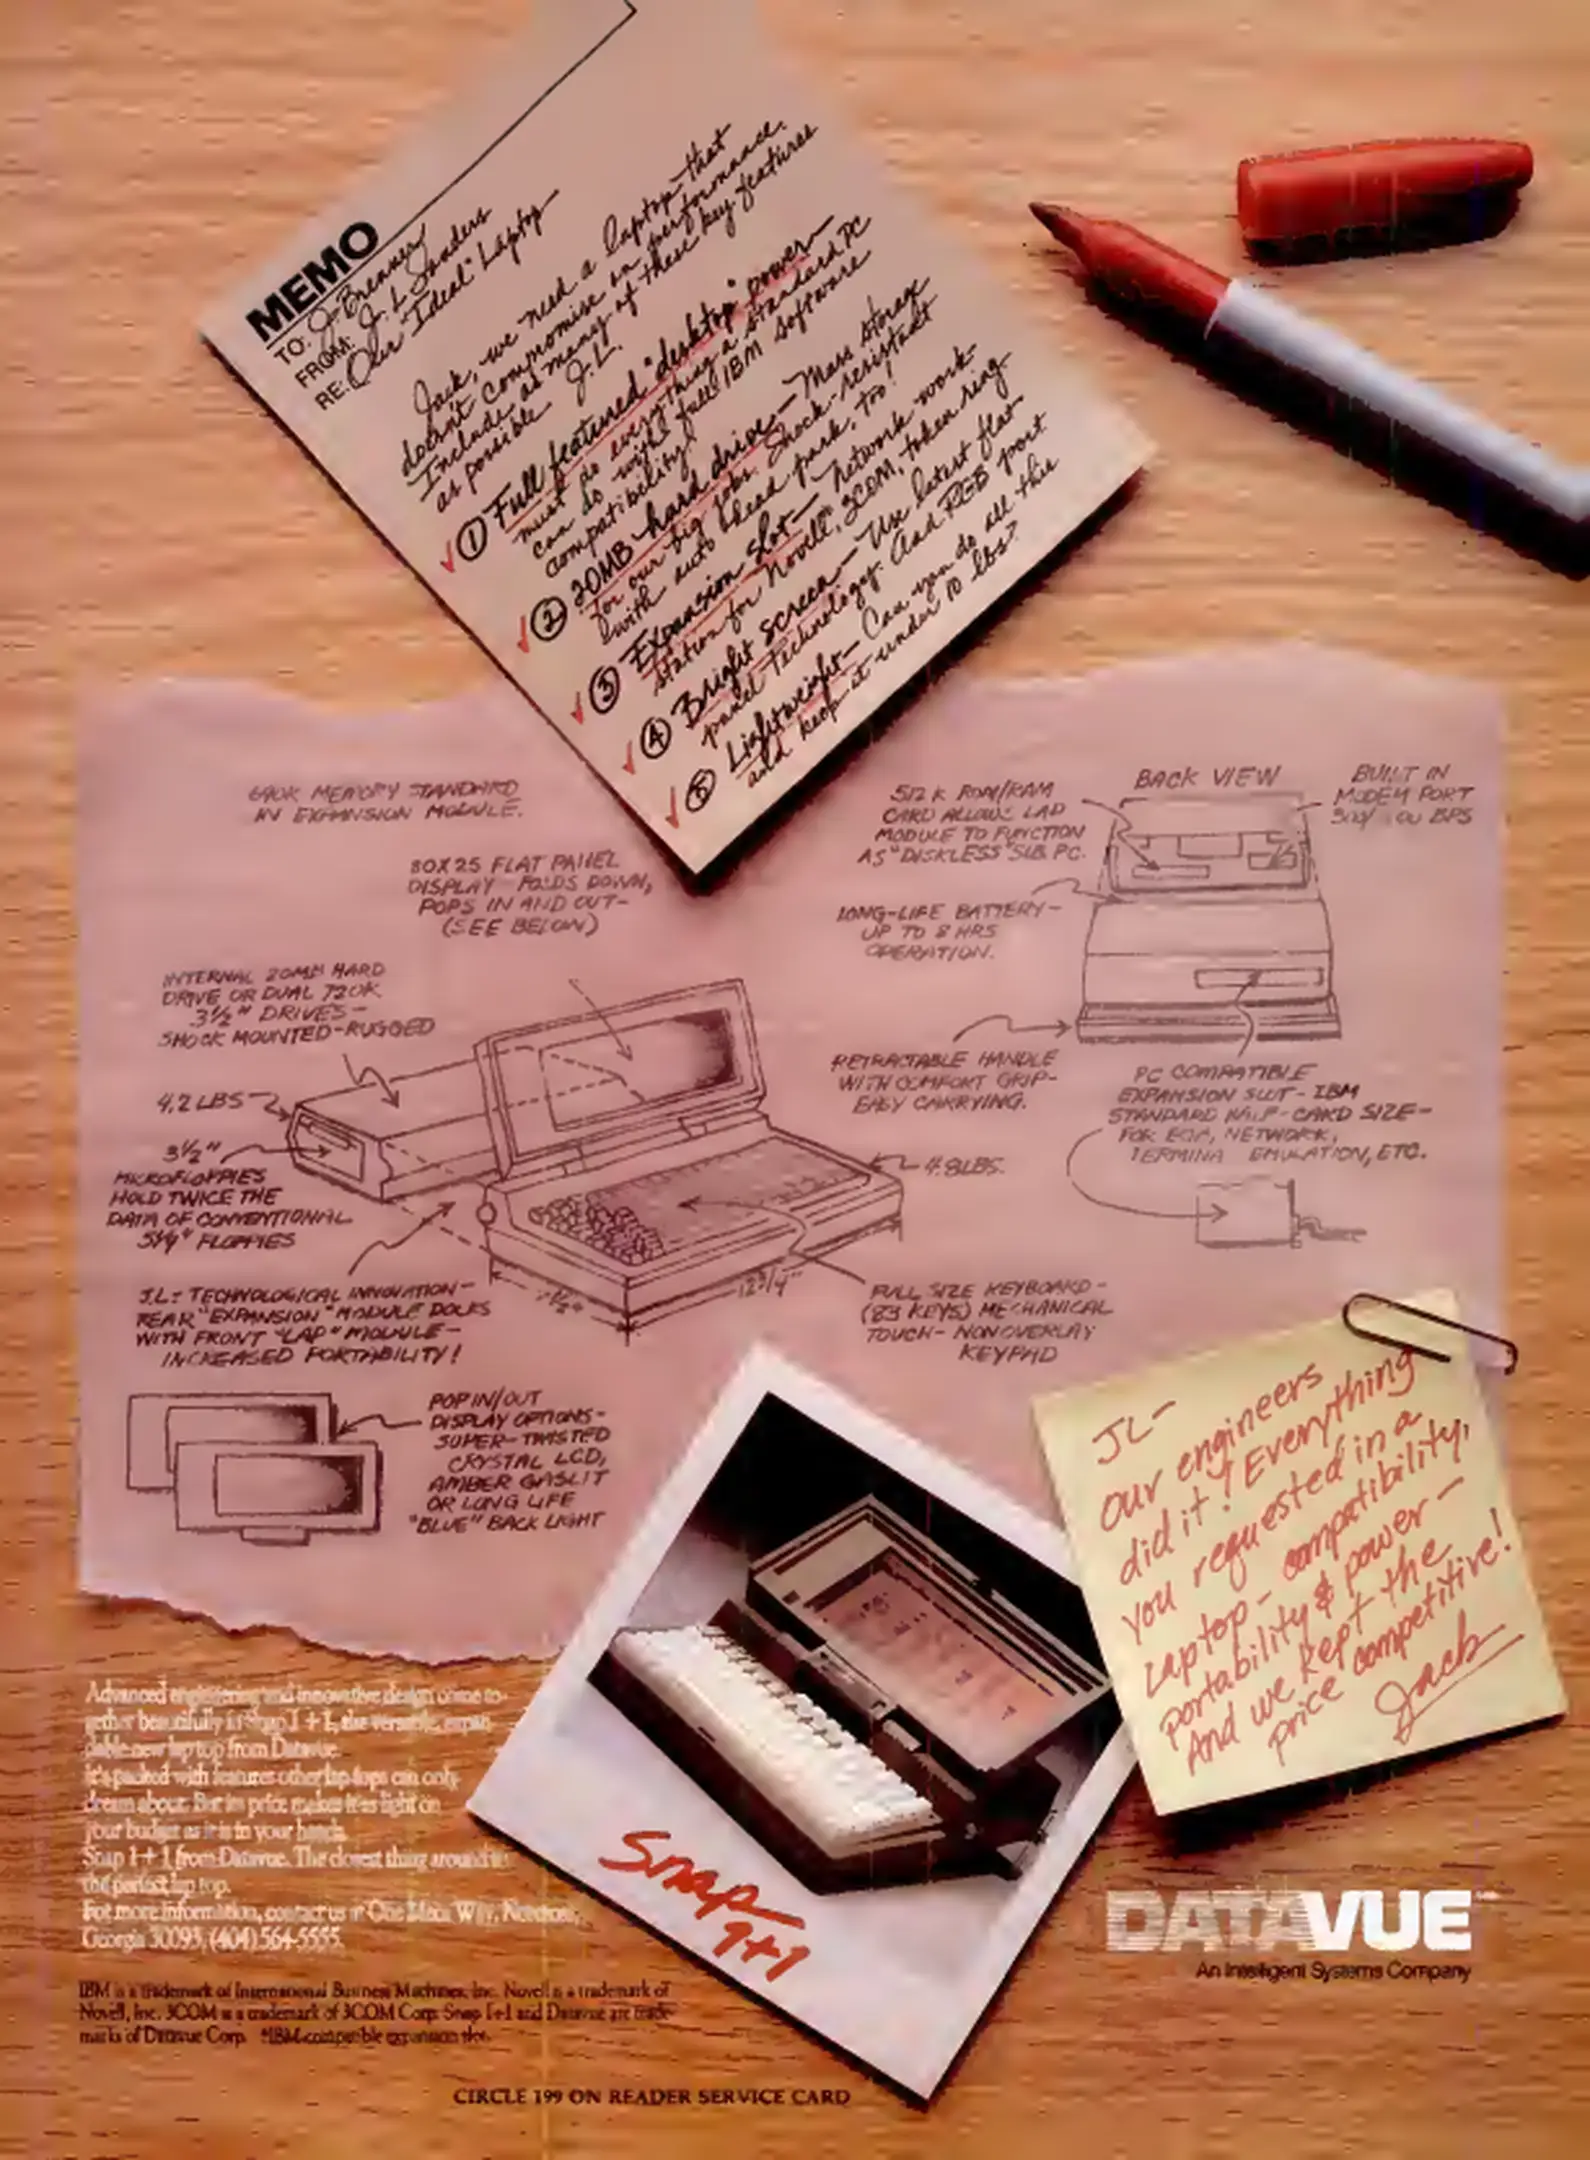 MEMO
TO: J. Brenner
FROM: J. L. Sanders
RE: Our "Ideal" Laptop
Jack, we need a laptop that
doesn't compromise on performance.
Include as many of these key features
as possible. J.L.
① Full featured "desktop" power—
must do everything a standard PC
can do with full IBM software
compatibility!
② 20MB hard drive— Mass storage
for our big jobs. Shock-resistant
with auto head park, too!
③ Expansion slot— Network work-
station for Novell, 3COM, token ring.
④ Bright screen— Use latest flat-
panel technology. And RGB port
⑤ Lightweight— Can you do all this
and keep it under 10 lbs?
640K MEMORY STANDARD
IN EXPANSION MODULE.
80X25 FLAT PANEL
DISPLAY - FOLDS DOWN,
POPS IN AND OUT-
(SEE BELOW)
INTERNAL 20MB HARD
DRIVE OR DUAL 720K
3½" DRIVES-
SHOCK MOUNTED-RUGGED
4.2 LBS
3½"
MICROFLOPPIES
HOLD TWICE THE
DATA OF CONVENTIONAL
5¼" FLOPPIES
J.L.- TECHNOLOGICAL INNOVATION-
REAR "EXPANSION" MODULE DOCKS
WITH FRONT "LAP" MODULE-
INCREASED PORTABILITY!
POP IN/OUT
DISPLAY OPTIONS-
SUPER-TWISTED
CRYSTAL LCD,
AMBER GASLIT
OR LONG LIFE
"BLUE" BACK LIGHT
BACK VIEW
512 K ROM/RAM
CARD ALLOWS LAP
MODULE TO FUNCTION
AS "DISKLESS" PC.
BUILT IN
MODEM PORT
BPS
LONG-LIFE BATTERY-
UP TO 8 HRS
OPERATION.
RETRACTABLE HANDLE
WITH COMFORT GRIP-
EASY CARRYING.
PC COMPATIBLE
EXPANSION SLOT- IBM
STANDARD HALF-CARD SIZE-
FOR EGA, NETWORK,
TERMINAL EMULATION, ETC.
4.8 LBS.
12¾"
FULL SIZE KEYBOARD-
(83 KEYS) MECHANICAL
TOUCH- NONOVERLAY
KEYPAD
JL-
our engineers
did it! Everything
you requested in a
laptop- compatibility,
portability & power-
And we kept the
price competitive!
Jack
Snap
1+1
Advanced engineering and innovative design come to-
gether beautifully in Snap 1+1, the versatile, expan-
dable new lap top from Datavue.
It's packed with features other lap tops can only
dream about. But its price makes it as light on
your budget as it is in your hands.
Snap 1+1 from Datavue. The closest thing around to
the perfect lap top.
For more information, contact us at One Meca Way, Norcross,
Georgia 30093, (404) 564-5555.
IBM is a trademark of International Business Machines, Inc. Novell is a trademark of
Novell, Inc. 3COM is a trademark of 3COM Corp. Snap 1+1 and Datavue are trade-
marks of Datavue Corp. *IBM-compatible expansion slot.
DATAVUE
An Intelligent Systems Company
CIRCLE 199 ON READER SERVICE CARD